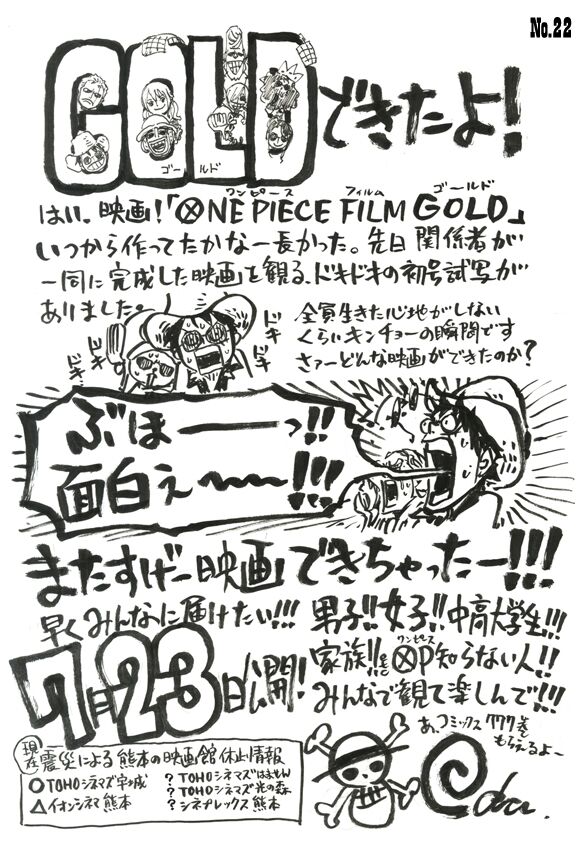 No.22
GOLDできたよ！
ゴールド
ワンピース フィルム ゴールド
はい、映画！「ONE PIECE FILM GOLD」
いつから作ってたかなー長かった。先日関係者が
一同に完成した映画を観る、ドキドキの初号試写が
ありました。
全員生きた心地がしない
くらいキンチョーの瞬間です
さァーどんな映画ができたのか？
ドキ
ドキ
ドキ
ドキ
ぶほーーっ!!
面白ぇ〜〜!!!
またすげー映画できちゃったー!!!
早くみんなに届けたい!!! 男子!!女子!!中高大学生!!!
ワンピース
家族!! OP知らない人!!
7月23日公開！
みんなで観て楽しんで!!!
あ、コミックス777巻を
もらえるよー
現在 震災による熊本の映画館休止情報
○TOHOシネマズ宇城
？TOHOシネマズはません
？TOHOシネマズ光の森
△イオンシネマ熊本
？シネプレックス熊本
Oda.